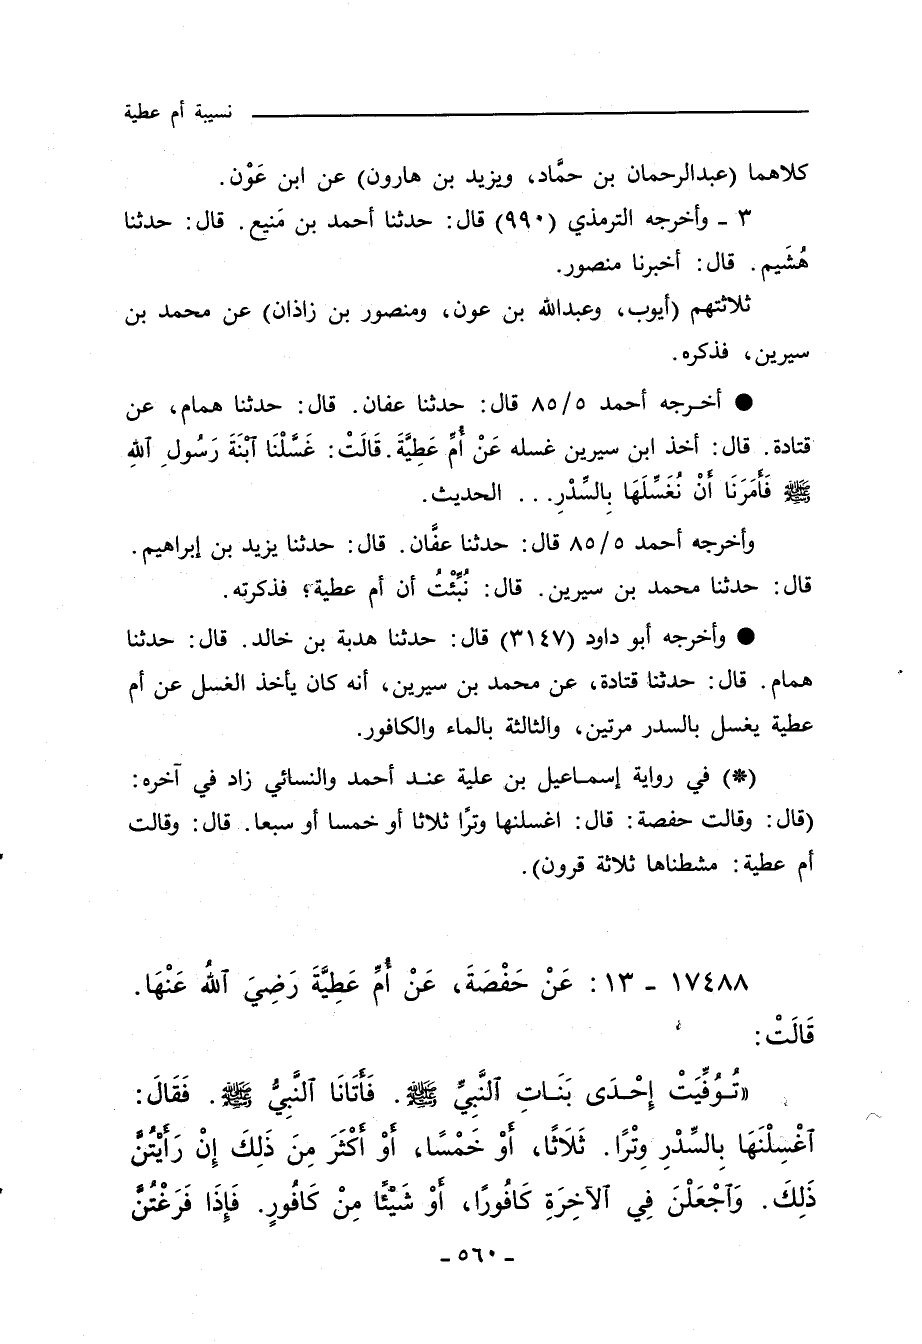 نسيبة أم عطية
كلاهما (عبدالرحمان بن حمَّاد، ويزيد بن هارون) عن ابن عَوْن.
٣ ـ وأخرجه الترمذي (٩٩٠) قال: حدثنا أحمد بن مَنيع. قال: حدثنا
هُشَيم. قال: أخبرنا منصور.
ثلاثتهم (أيوب، وعبدالله بن عون، ومنصور بن زاذان) عن محمد بن
سيرين، فذكره.
● أخرجه أحمد ٨٥/٥ قال: حدثنا عفان. قال: حدثنا همام، عن
قتادة. قال: أخذ ابن سيرين غسله عَنْ أُمِّ عَطِيَّةَ. قَالَتْ: غَسَّلْنَا ٱبْنَةَ رَسُولِ ٱللهِ
ﷺ فَأَمَرَنَا أَنْ نُغَسِّلَهَا بِالسِّدْرِ... الحديث.
وأخرجه أحمد ٨٥/٥ قال: حدثنا عفَّان. قال: حدثنا يزيد بن إبراهيم.
قال: حدثنا محمد بن سيرين. قال: نُبِّئْتُ أن أم عطية؟ فذكرته.
● وأخرجه أبو داود (٣١٤٧) قال: حدثنا هدبة بن خالد. قال: حدثنا
همام. قال: حدثنا قتادة، عن محمد بن سيرين، أنه كان يأخذ الغسل عن أم
عطية يغسل بالسدر مرتين، والثالثة بالماء والكافور.
(*) في رواية إسماعيل بن علية عند أحمد والنسائي زاد في آخره:
(قال: وقالت حفصة: قال: اغسلنها وترًا ثلاثا أو خمسا أو سبعا. قال: وقالت
أم عطية: مشطناها ثلاثة قرون).
١٧٤٨٨ ـ ١٣: عَنْ حَفْصَةَ، عَنْ أُمِّ عَطِيَّةَ رَضِيَ ٱللهُ عَنْهَا.
قَالَتْ:
«تُوُفِّيَتْ إِحْدَى بَنَاتِ ٱلنَّبِيِّ ﷺ. فَأَتَانَا ٱلنَّبِيُّ ﷺ. فَقَالَ:
ٱغْسِلْنَهَا بِالسِّدْرِ وِتْرًا. ثَلَاثًا، أَوْ خَمْسًا، أَوْ أَكْثَرَ مِنَ ذَلِكَ إِنْ رَأَيْتُنَّ
ذَلِكَ. وَٱجْعَلْنَ فِي ٱلآخِرَةِ كَافُورًا، أَوْ شَيْئًا مِنْ كَافُورٍ. فَإِذَا فَرَغْتُنَّ
ـ ٥٦٠ ـ